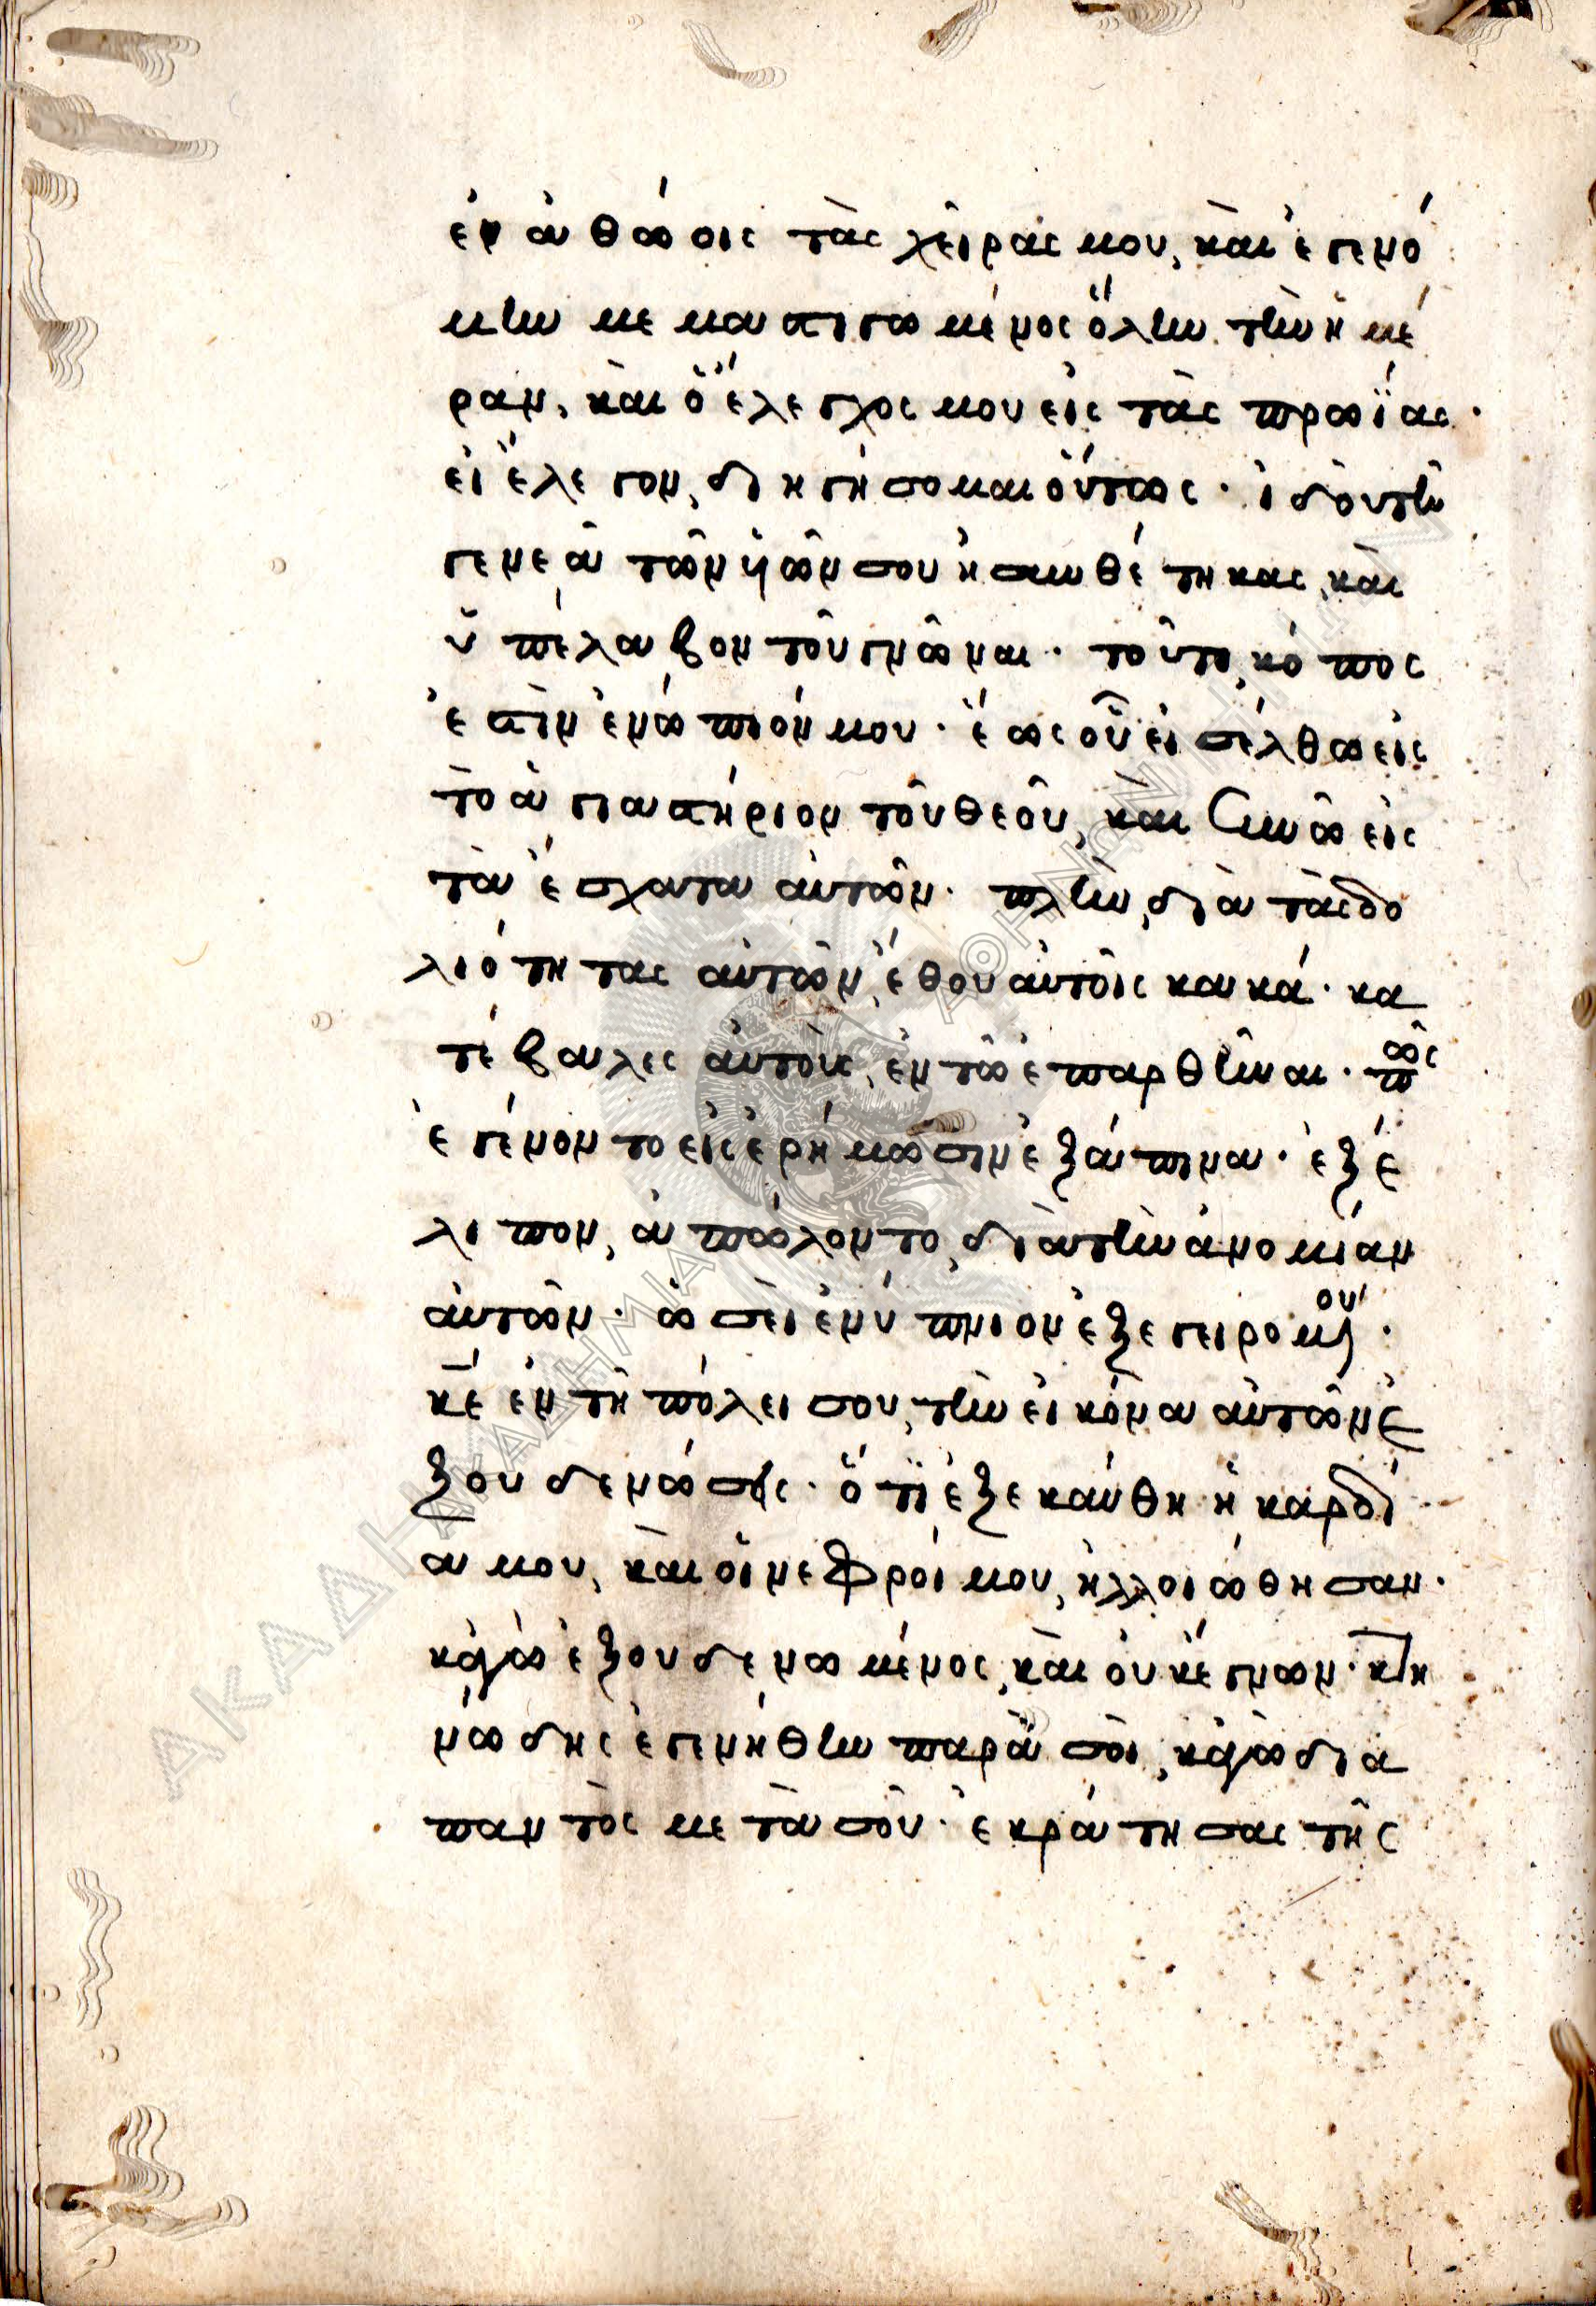 ἐν ἀθώοις τὰς χεῖρας μου, καὶ ἐγενό
μην μεμαστιγωμένος ὅλην τὴν ἡμέ
ραν, καὶ ὁ ἔλεγχος μου εἰς τὰς πρωΐας·
εἰ ἔλεγον, διηγήσομαι οὕτως· ἰδοὺ τῆ
γενεᾶ τῶν ὑῶν σου ἠσυνθέτηκας, καὶ
ὑπέλαβον τοῦ γνῶναι· τοῦτο κόπος
ἐστὶν ἐνώπιόν μου· ἕως οὗ εἰσέλθω εἰς
τὸ ἁγιαστήριον τοῦ θεοῦ, καὶ συνῶ εἰς
τὰ ἔσχατα αὐτῶν· πλὴν, διὰ τὰς δο
λιότητας αὐτῶν, ἔθου αὐτοῖς κακά· κα
τέβαλες αὐτοὺς, ἐν τῶ ἐπαρθῆναι· πῶς
ἐγένοντο εἰς ἐρήμωσιν ἐξάπινα· ἐξέ
λιπον, ἀπώλοντο, διὰ τὴν ἀνομίαν
αὐτῶν· ὡσεὶ ἐνύπνιον ἐξεγειρομένου·
κε ἐν τῆ πόλει σου, τὴν εἰκόνα αὐτῶν ἐ
ξουδενώσεις· ὅτι ἐξεκαύθη ἡ καρδί
α μου, καὶ οἱ νεφροί μου, ἠλλοιώθησαν·
κἀγὼ ἐξουδενωμένος, καὶ οὐκ ἔγνων· κτη
νώδης ἐγενήθην παρὰ σοὶ, κἀγὼ δια
παντὸς μετὰ σοῦ· ἐκράτησας τῆς
ΑΚΑΔΗΜΙΑ ΑΘΗΝΩΝ